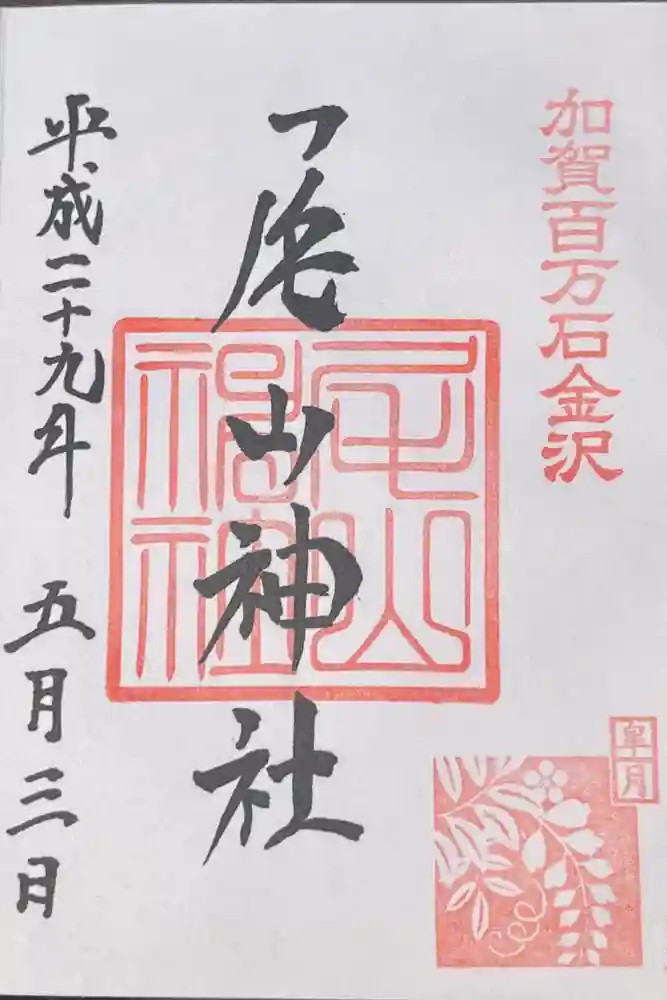 加賀百万石金沢
尾山神社
尾山神社
皐月
平成二十九年 五月三日